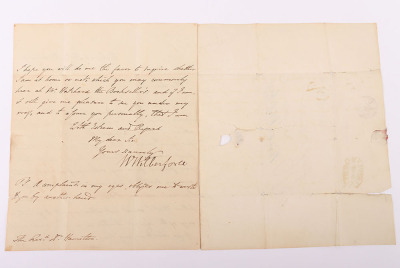 I hope you will do me the favor to inquire whether
I am at home or not, which you may commonly
hear at Mr Hatchard the Bookseller's and if I am
it will give me pleasure to see you under my
roof, and to assure you personally, that I am
With Esteem and Regard
My dear Sir
Yours sincerely
W Wilberforce
PS A complaint in my eyes obliges me to write
to you by another hand